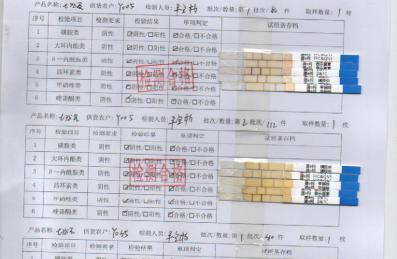 产品名称: 供货农户: Y005 检测人员: 批次/数量: 第1批次/ 件 取样数量: 1 枚
序号 检验项目 检测要求 检测结果 单项判定 试纸条存档
1 磺胺类 阴性 ☑阴性/□阳性 ☑合格/□不合格
2 大环内酯类 阴性 ☑阴性/□阳性 ☑合格/□不合格
3 β一内酰胺类 阴性 ☑阴性/□阳性 ☑合格/□不合格
4 四环素类 阴性 ☑阴性/□阳性 ☑合格/□不合格
5 甲硝唑类 阴性 ☑阴性/□阳性 ☑合格/□不合格
6 喹诺酮类 阴性 ☑阴性/□阳性 ☑合格/□不合格
检测合格
产品名称: 供货农户: Y005 检测人员: 批次/数量: 第2批次/ 112 件 取样数量: 1 枚
序号 检验项目 检测要求 检测结果 单项判定 试纸条存档
1 磺胺类 阴性 ☑阴性/□阳性 ☑合格/□不合格
2 大环内酯类 阴性 ☑阴性/□阳性 ☑合格/□不合格
3 β一内酰胺类 阴性 ☑阴性/□阳性 ☑合格/□不合格
4 四环素类 阴性 ☑阴性/□阳性 ☑合格/□不合格
5 甲硝唑类 阴性 ☑阴性/□阳性 ☑合格/□不合格
6 喹诺酮类 阴性 ☑阴性/□阳性 ☑合格/□不合格
检测合格
产品名称: 供货农户: 检测人员: 批次/数量: 第1批次/ 40 件 取样数量: 1 枚
序号 检验项目 检测要求 检测结果 单项判定 试纸条存档